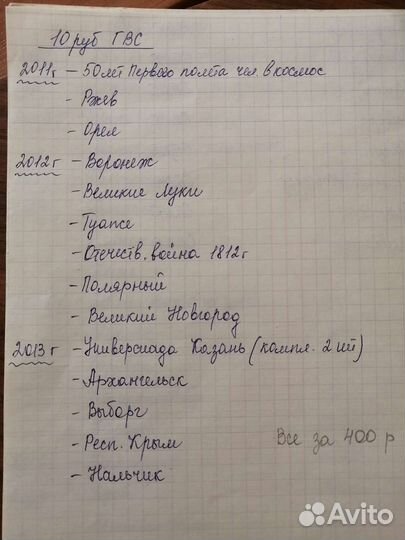 10 руб ГВС
2011г – 50 лет Первого полёта чел. в космос
- Ржев
- Орел
2012г – Воронеж
- Великие Луки
- Туапсе
- Отечеств. война 1812г
- Полярный
- Великий Новгород
2013г – Универсиада Казань (компл. 2 шт)
- Архангельск
- Выборг
- Респ. Крым
- Нальчик
Все за 400 р
Avito